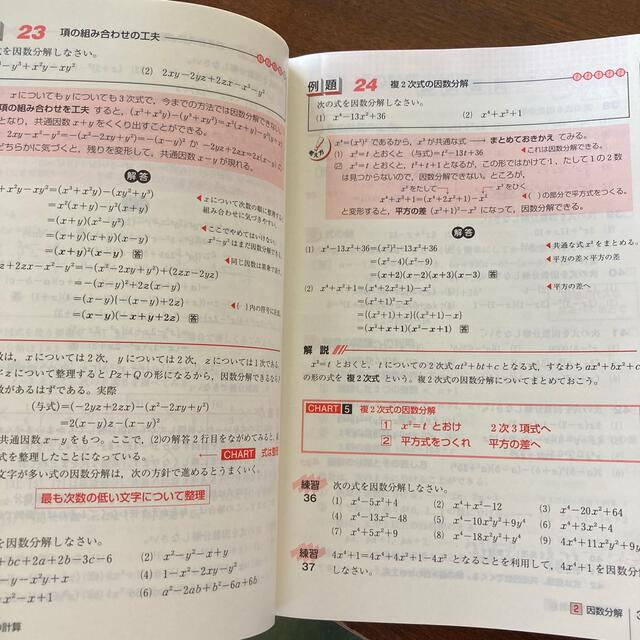 23 項の組み合わせの工夫
式を因数分解しなさい。
-y³+x²y-xy² (2) 2xy-2yz+2zx-x²-y²
xについてもyについても3次式で、今までの方法では因数分解できない。
項の組み合わせを工夫 すると、(x³+x²y)-(y³+xy²)=x²(x+y)-y²(
となり、共通因数x+yをくくり出すことができる。
2xy-x²-y²=-(x²-2xy+y²)=-(x-y)² か -2yz+2zx=2z(x-y) の
どちらかに気づくと、残りを変形して、共通因数x-yが現れる。
解答
+x²y-xy²=(x³+x²y)-(xy²+y³)
=x²(x+y)-y²(x+y)
=(x+y)(x²-y²)
=(x+y)(x+y)(x-y)
=(x+y)²(x-y) 答
◀xについて次数の順に整理す
組み合わせに気づきやすい。
◀ここでやめてはいけない。
x²-y²はまだ因数分解でき
z+2zx-x²-y²=-(x²-2xy+y²)+(2zx-2yz)
=-(x-y)²+2z(x-y)
=(x-y){-(x-y)+2z}
=(x-y)(-x+y+2z) 答
◀同じ因数は
◀{ }内の符号に
数は、xについては2次、yについては2次、zについては1次であ
zについて整理するとPz+Qの形になるから、因数分解できるなら
数があるはずである。実際
(与式)=(-2yz+2zx)-(x²-2xy+y²)
=2(x-y)z-(x-y)²
共通因数x-yをもつ。ここで、(2)の解答2行目をながめてみると、
式を整理したことになっている。 CHART 式は整
文字が多い式の因数分解は、次の方針で進めるとうまくいく。
最も次数の低い文字について整理
を因数分解しなさい。
+bc+2a+2b-3c-6 (2) x²-y²-x+y
-y-x²y+x (4) 1-x²-2xy-y²
²-x+1 (6) a²-2ab+b²-6a+6b
の計算
例題 24 複2次式の因数分解
次の式を因数分解しなさい。
(1) x⁴-13x²+36 (2) x⁴+x²+1
考え方
x⁴=(x²)² であるから、x²が共通な式 → まとめておきかえ てみる。
(1) x²=t とおくと (与式)=t²-13t+36 ◀これは因数分解できる。
(2) x²=t とおくと、t²+t+1となるが、この形ではかけて1、たして1の2数
は見つからないので、因数分解できない。ところが、
x²をたして x²をひく
x⁴+x²+1=(x⁴+2x²+1)-x² ◀( )の部分で平方式をつくる。
と変形すると、平方の差 (x²+1)²-x² になって、因数分解できる。
解答
(1) x⁴-13x²+36=(x²)²-13x²+36
=(x²-4)(x²-9)
=(x+2)(x-2)(x+3)(x-3) 答
◀共通な式x²をまとめる。
◀平方の差×平方の差
(2) x⁴+x²+1=(x⁴+2x²+1)-x²
=(x²+1)²-x²
={(x²+1)+x}{(x²+1)-x}
=(x²+x+1)(x²-x+1) 答
◀平方の差へ
解説
x²=t とおくと、tについての2次式 at²+bt+c となる式、すなわち ax⁴+bx²+c
の形の式を 複2次式 という。複2次式の因数分解についてまとめておこう。
CHART 5 複2次式の因数分解
1 x²=t とおけ 2次3項式へ
2 平方式をつくれ 平方の差へ
練習 36
次の式を因数分解しなさい。
(1) x⁴-5x²+4 (2) x⁴+x²-12 (3) x⁴-20x²+64
(4) x⁴-13x²-48 (5) x⁴-10x²y²+9y⁴ (6) x⁴+3x²+4
(7) x⁴+5x²+9 (8) x⁴-18x²y²+y⁴ (9) 4x⁴+11x²y²+9y
練習 37
4x⁴+1=4x⁴+4x²+1-4x² となることを利用して、4x⁴+1を因数
しなさい。
2 因数分解